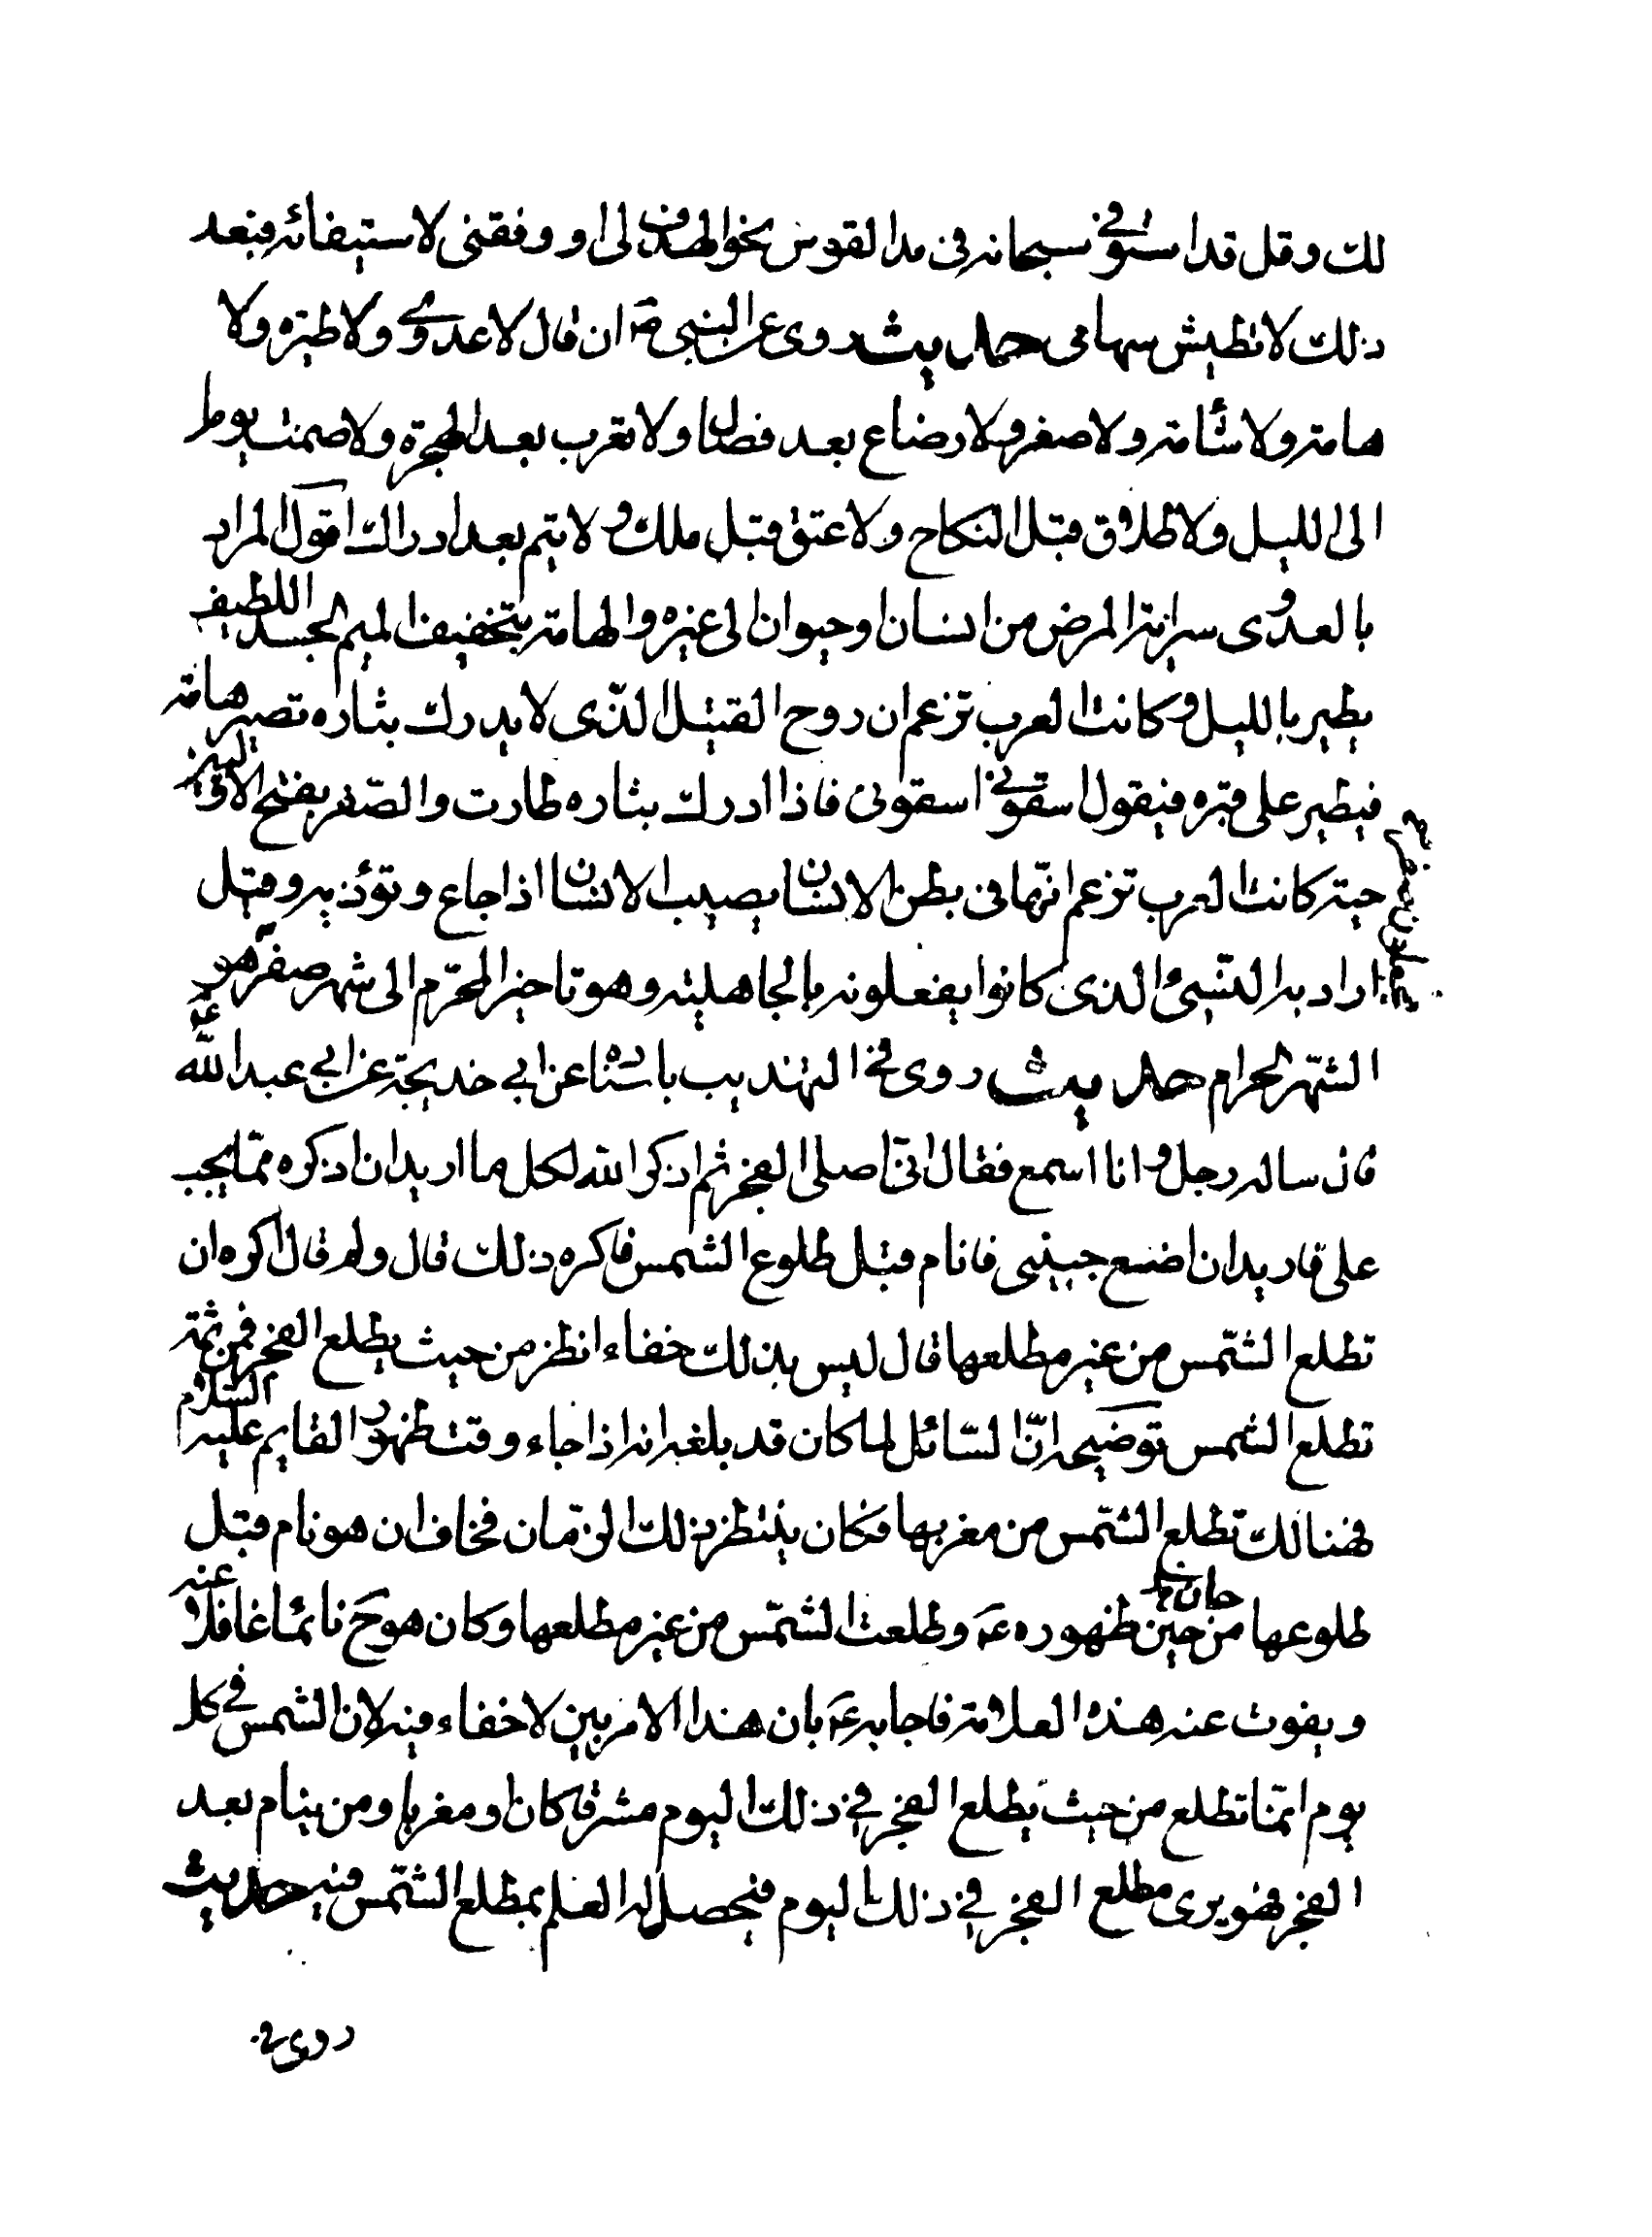 لك وقل قد استوفى سبحانه فى مد القوس نحو الهدف لى او وفقنى لاستيفائه فبعد
ذلك لا تطيش سهامى حديث روى عن النبى ص ان قال لا عدوى ولا طيره ولا
هامة ولا شأمة ولا صفر ولا رضاع بعد فصال ولا تعرب بعد الهجرة ولا صمت يوما
الى الليل ولا طلاق قبل النكاح ولا عتق قبل ملك ولا يتم بعد ادراك اقول المراد
بالعدوى سراية المرض من انسان او حيوان الى غيره والهامة بتخفيف الميم الجسد اللطيف
يطير بالليل وكانت العرب تزعم ان روح القتيل الذى لا يدرك بثاره تصير هامة
فيطير على قبره فيقول اسقونى اسقونى فاذا ادرك بثاره طارت والصفر بفتح الاولين
حية كانت العرب تزعم انها فى بطن الانسان يصيب الانسان اذا جاع وتؤذيه وقيل
اراد به النسئ الذى كانوا يفعلونه بالجاهلية وهو تاخير المحرم الى شهر صفر هو
الشهر الحرام حديث روى فى التهذيب باسناده عن ابي خديجة عن ابي عبد الله ع
قال ساله رجل وانا اسمع فقال انى اصلى الفجر ثم اذكر الله لكل ما اريد ان اذكره مما يجب
على فاريد ان اضع جبينى فانام قبل طلوع الشمس فاكره ذلك قال ولم قال اكره ان
تطلع الشمس من غير مطلعها قال ليس بذلك خفاء انظر من حيث يطلع الفجر فمن ثمة
تطلع الشمس توضيحه ان السائل لما كان قد بلغه انه اذا جاء وقت ظهور القايم عليه السلام
فهنالك تطلع الشمس من مغربها فكان ينتظر ذلك الزمان فخاف ان هو نام قبل
طلوعها من حين حان ظهوره ع وطلعت الشمس من غير مطلعها وكان هو ح نائما غافلا عنه
ويفوت عنه هذه العلامة فاجابه ع بان هذا الامر بين لا خفاء فيه لان الشمس فى كل
يوم انما تطلع من حيث يطلع الفجر فى ذلك اليوم مشرقا كان او مغربا ومن ينام بعد
الفجر فهو يرى مطلع الفجر فى ذلك اليوم فيحصل له العلم بمطلع الشمس فيه حديث
روى فى